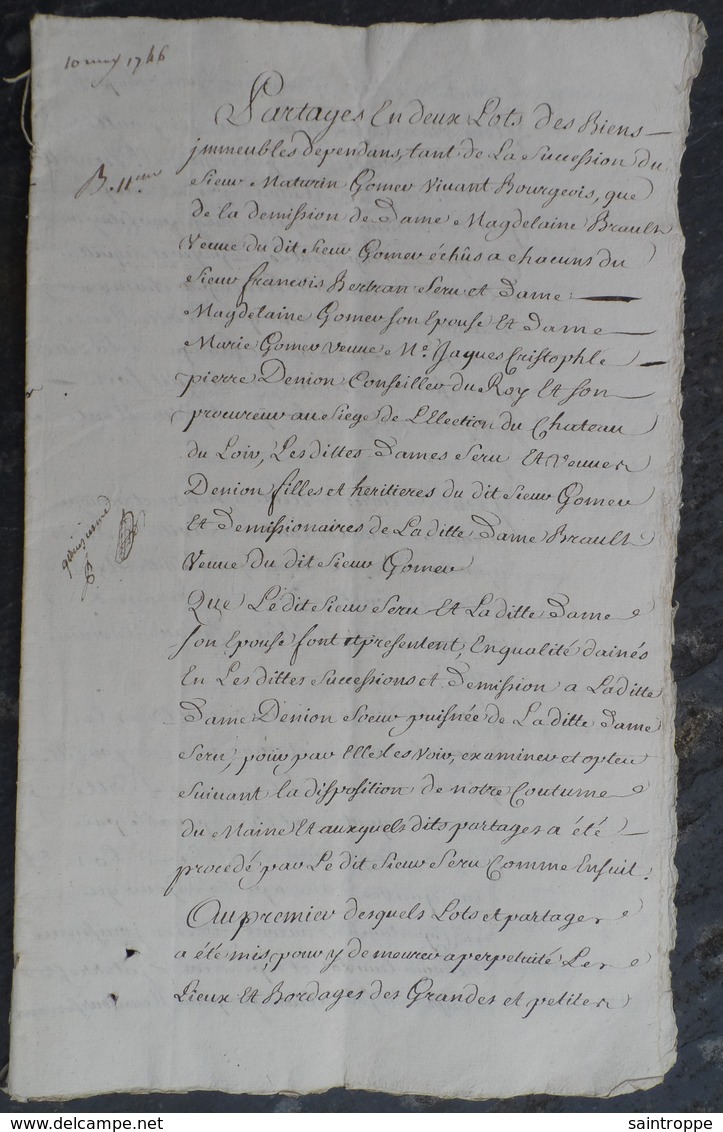 10 may 1746
Partages En deux Lots des Biens
jmmeubles dependans, tant de La Succession du
Sieur Maturin Gomer Vivant Bourgeois, que
B. 11.me
de la demission de Dame Magdelaine Brault
Veuue du dit Sieur Gomer échûs a chacuns du
Sieur francois Bertran Seru et Dame
Magdelaine Gomer son Epouse Et Dame
Marie Gomer veuue Me. Jaques Cristophle
pierre Denion Conseiller du Roy Et son
procureur au Siege de L'Election du Chateau
du Loir, Les dittes Dames Seru Et Veuue
Denion filles et heritieres du dit Sieur Gomer
Et Demissionaires de La ditte Dame Brault
Veuue du dit Sieur Gomer
Que Lédit Sieur Seru Et La ditte Dame
son Epouse font et presentent, En qualité d'ainés
En Les dittes Successions et Demission a La ditte
Dame Denion Soeur puisnée de La ditte Dame
Seru, pour par Elle les Voir, examiner et opter
Suivant la disposition de notre Coutume
du Maine Et auxquels dits partages a été
procedé par Le dit Sieur Seru Comme Ensuit.
Au premier desquels Lots et partages
a été mis, pour y demeurer a perpetuité Les
Lieux Et Bordages des Grandes et petites
saintroppe